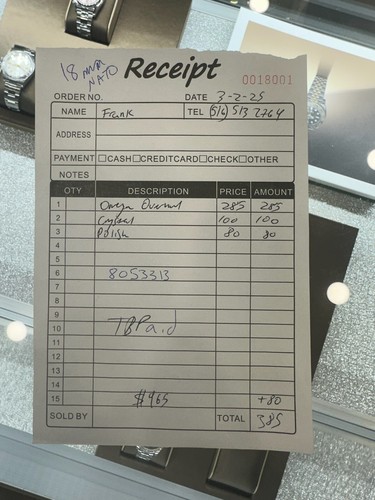 18 mm NATO
Receipt
0018001
ORDER NO. DATE 3-2-25
NAME Frank TEL (516) 513 2764
ADDRESS
PAYMENT □CASH □CREDITCARD □CHECK □OTHER
NOTES
QTY DESCRIPTION PRICE AMOUNT
1 Omega Overhaul 285 285
2 Crystal 100 100
3 Polish 80 80
4
5
6 8053313
7
8
9
10 TBPaid
11
12
13
14
15 $465 +80
SOLD BY TOTAL 385